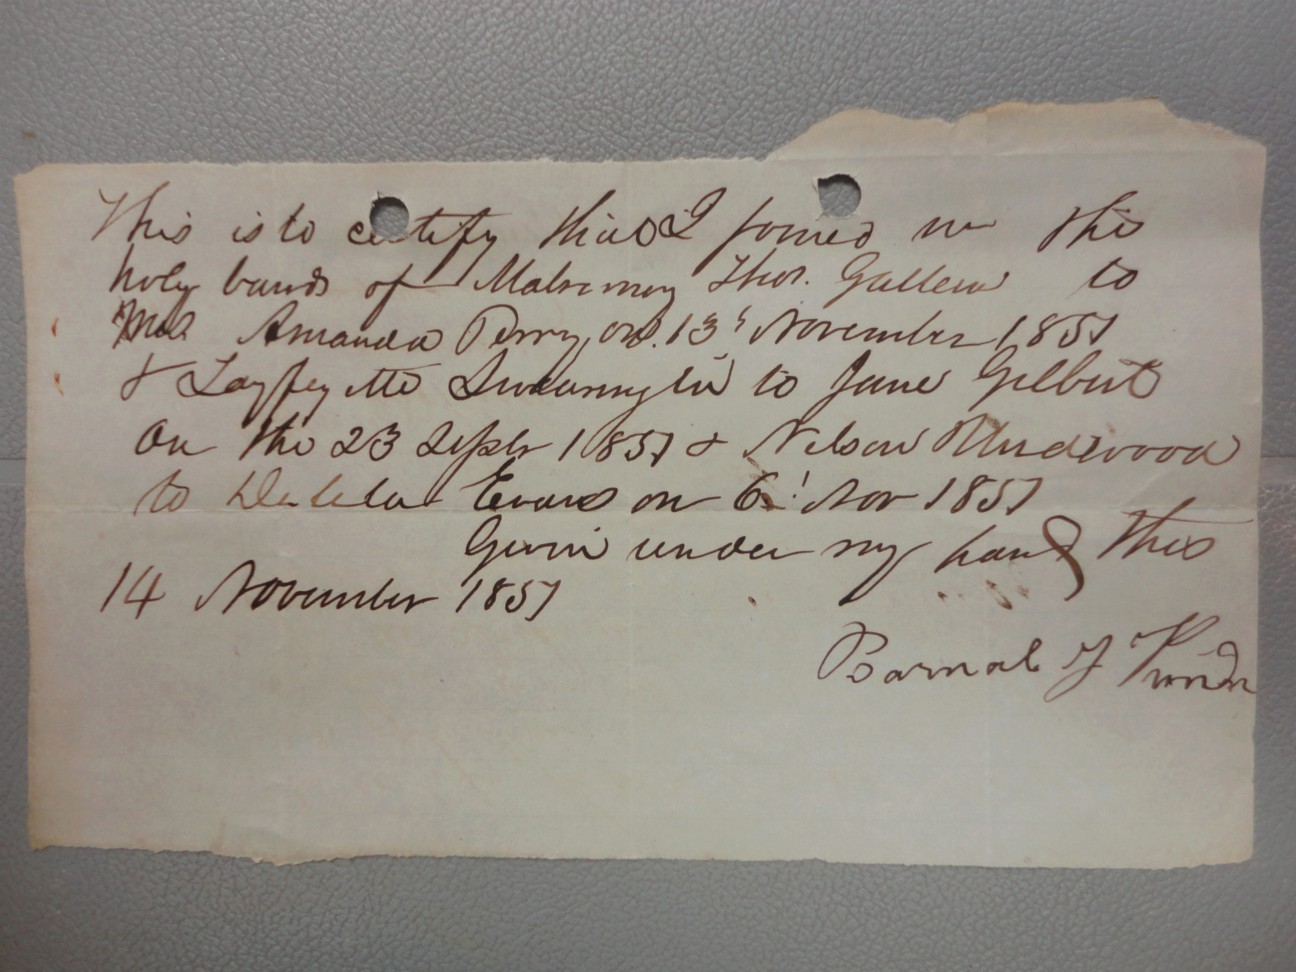 This is to certify that I joined in the
holy bands of Matrimony Thos. Gallew to
Amanda Perry on 13th November 1857
& Layfeyette Swearingin to Jane Gilbert
on the 23 Septr 1857 & Nelson Underwood
to Delila Evans on 6th Nov 1857
Givin under my hand this
14 November 1857
Barnab J